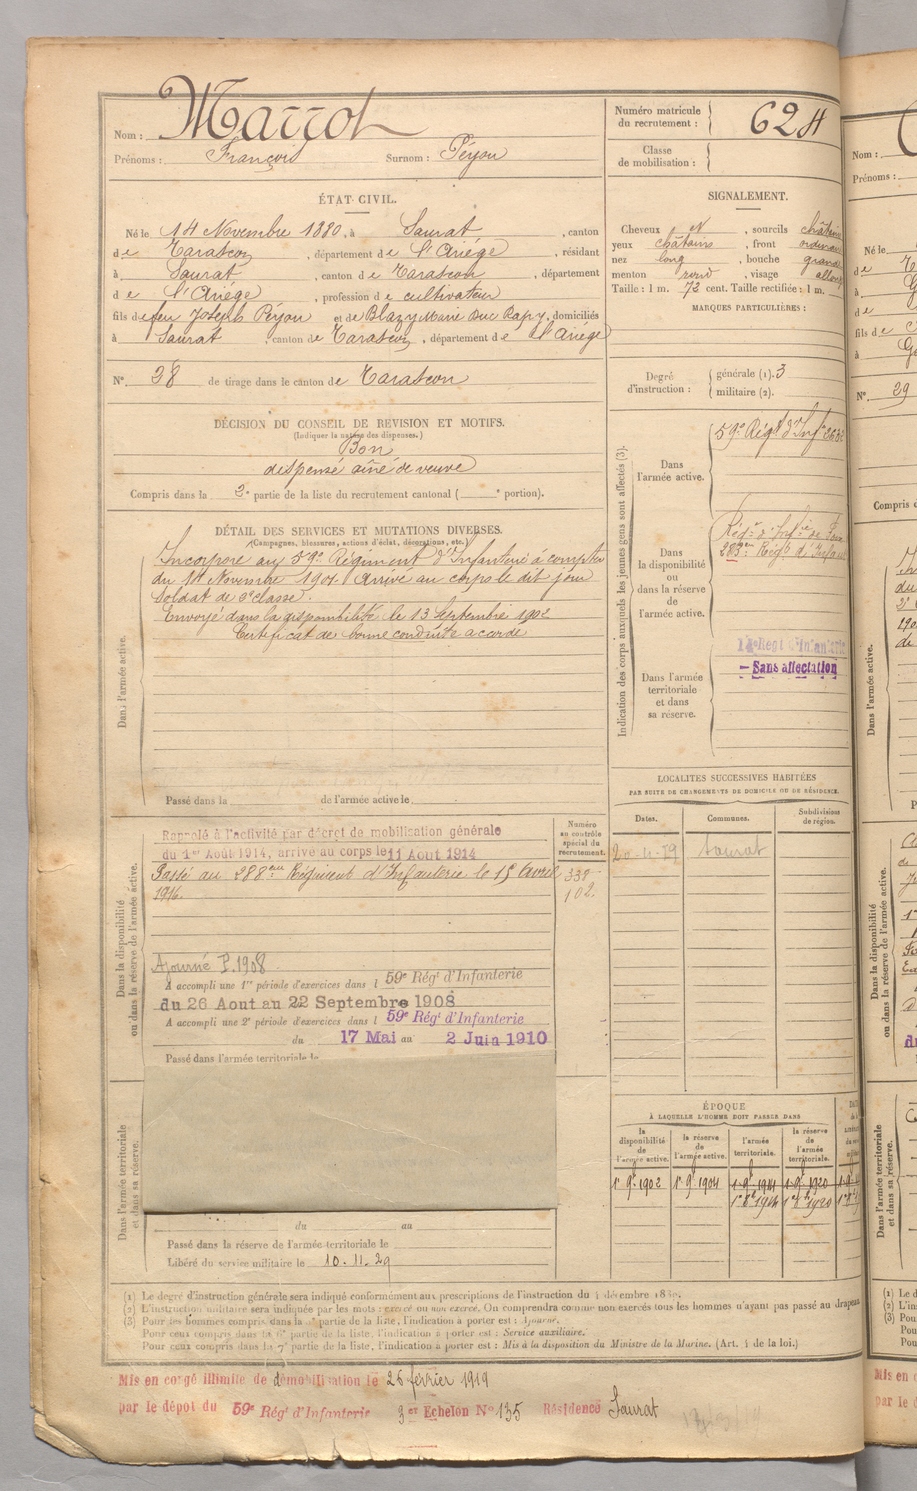 Nom : Marrot
Prénoms : François Surnom : Péyou
Numéro matricule du recrutement : 624
Classe de mobilisation :
ÉTAT CIVIL.
Né le 14 Novembre 1880, à Saurat, canton
de Tarascon, département de l'Ariége, résidant
à Saurat, canton de Tarascon, département
de l'Ariége, profession de cultivateur
fils de feu Joseph Péyou et de Blazy Marie, domiciliés
à Saurat, canton de Tarascon, département de l'Ariége
N° 38 de tirage dans le canton de Tarascon
DÉCISION DU CONSEIL DE REVISION ET MOTIFS.
(Indiquer la nature des dispenses.)
Bon
dispensé ainé de veuve
Compris dans la 2e partie de la liste du recrutement cantonal ( e portion).
DÉTAIL DES SERVICES ET MUTATIONS DIVERSES.
(Campagnes, blessures, actions d'éclat, décorations, etc.)
Dans l'armée active.
Incorporé au 59e Régiment d'Infanterie à compter
du 14 Novembre 1901. Arrivé au corps le dit jour
Soldat de 2e classe.
Envoyé dans la disponibilité le 13 Septembre 1902
Certificat de bonne conduite accordé
Passé dans la de l'armée active le
Dans la disponibilité ou dans la réserve de l'armée active.
Numéro au contrôle spécial du recrutement.
Rappelé à l'activité par décret de mobilisation générale
du 1er Août 1914, arrivé au corps le 11 Aout 1914
Passé au 288eme Régiment d'Infanterie le 15 Avril 338
1916. 102
Ajourné P. 1908
A accompli une 1re période d'exercices dans l 59e Régt d'Infanterie
du 26 Aout au 22 Septembre 1908
A accompli une 2e période d'exercices dans l 59e Régt d'Infanterie
du 17 Mai au 2 Juin 1910
Passé dans l'armée territoriale le
Dans l'armée territoriale et dans sa réserve.
du au
Passé dans la réserve de l'armée territoriale le
Libéré du service militaire le 10.11.29
SIGNALEMENT.
Cheveux et, sourcils châtains
yeux châtains, front ordinaire
nez long, bouche grande
menton rond, visage allongé
Taille : 1 m. 72 cent. Taille rectifiée : 1 m.
MARQUES PARTICULIÈRES :
Degré d'instruction : générale (1). 3
militaire (2).
Indication des corps auxquels les jeunes gens sont affectés (3).
Dans l'armée active.
59e Régt d'Infie
Dans la disponibilité ou dans la réserve de l'armée active.
Régt d'Infie de
Dans l'armée territoriale et dans sa réserve.
14e Régt d'Infanterie
- Sans affectation
LOCALITES SUCCESSIVES HABITÉES
PAR SUITE DE CHANGEMENTS DE DOMICILE OU DE RÉSIDENCE.
Dates. Communes. Subdivisions de région.
Saurat
ÉPOQUE
À LAQUELLE L'HOMME DOIT PASSER DANS
la disponibilité de l'armée active. la réserve de l'armée active. l'armée territoriale. la réserve de l'armée territoriale.
1r 9e 1902 1r 9e 1904 1r 9e 1914 1r 9e 1920
1r 8e 1914 1r 8e 1920
(1) Le degré d'instruction générale sera indiqué conformément aux prescriptions de l'instruction du
(2) L'instruction militaire sera indiquée par les mots : exercé ou non exercé. On comprendra comme non exercés tous les hommes n'ayant pas passé au drapeau
(3) Pour les hommes compris dans la partie de la liste, l'indication à porter est : Ajourné.
Pour ceux compris dans la 6e partie de la liste, l'indication à porter est : Service auxiliaire.
Pour ceux compris dans la 7e partie de la liste, l'indication à porter est : Mis à la disposition du Ministre de la Marine. (Art. 4 de la loi.)
Mis en congé illimité de démobilisation le 26 février 1919
par le dépot du 59e Régt d'Infanterie 3er Echelon N° 135 Résidence Saurat